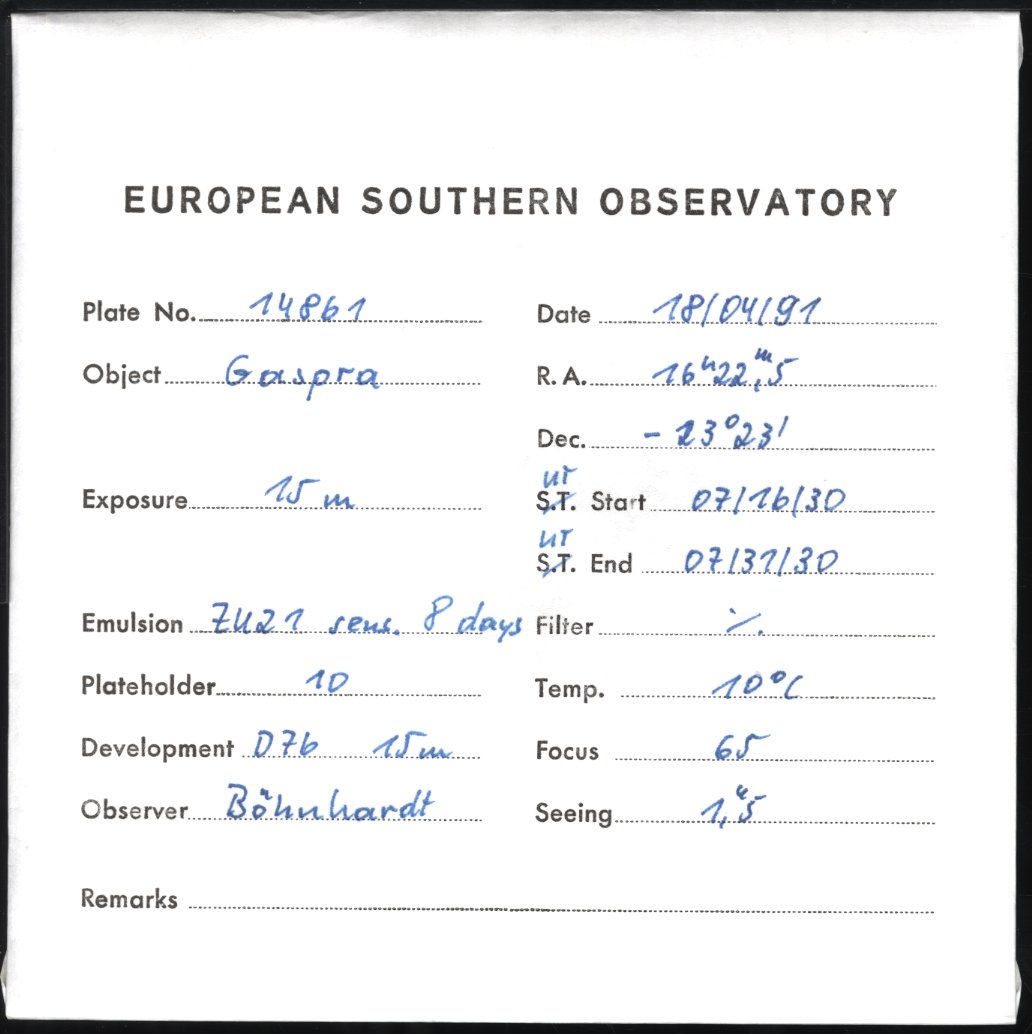 EUROPEAN SOUTHERN OBSERVATORY
Plate No. 14861 Date 18/04/91
Object Gaspra R.A. 16ʰ22ᵐ,5
Dec. - 23°23'
UT
Exposure 15 m S.T. Start 07/16/30
UT
S.T. End 07/31/30
Emulsion ZU21 sens. 8 days Filter ·/.
Plateholder 10 Temp. 10°C
Development D76 15m Focus 65
Observer Böhnhardt Seeing 1,"5
Remarks